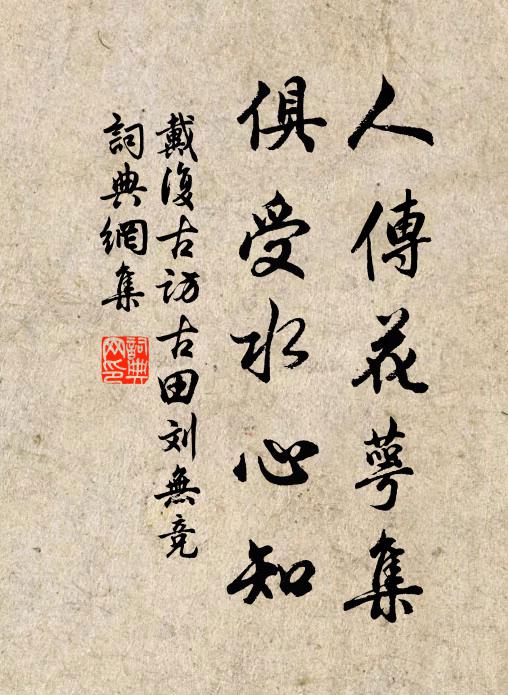 人傳花萼集
俱受水心知
戴復古訪古田刘無竞
詞典網集
詞典
网印